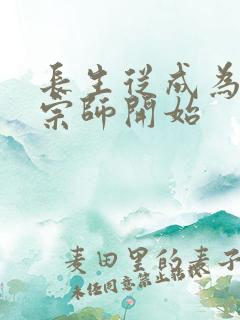 長生從成為
宗師開始
麦田里的麦子
未任同意禁止転載